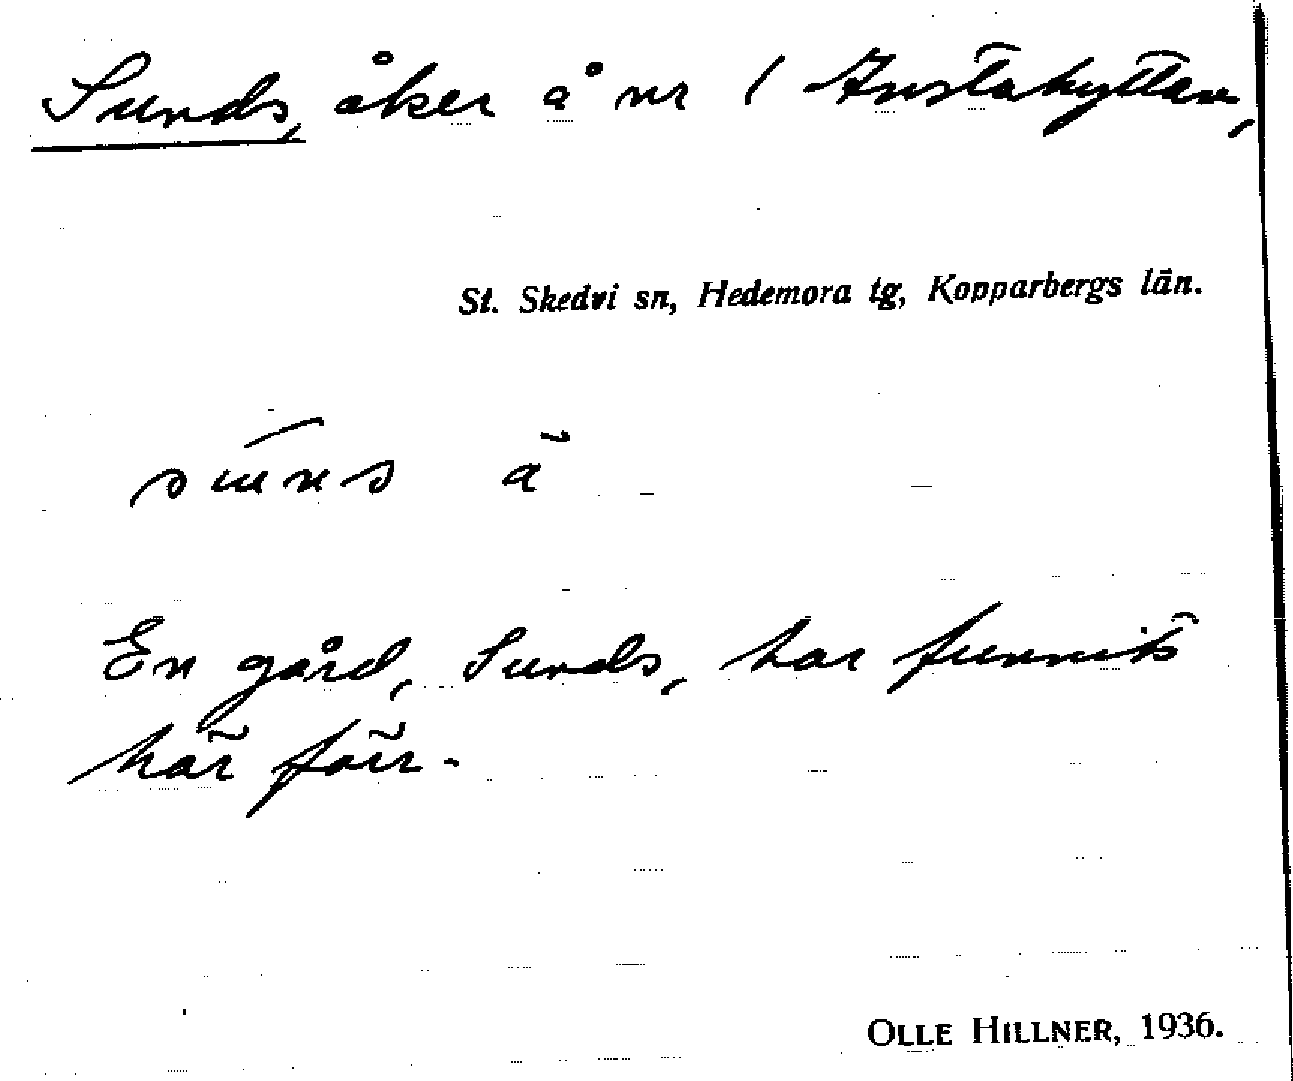 Sunds, åker å nr 1 Anstahyttan,
St. Skedvi sn, Hedemora tg, Kopparbergs län.
En gård, Sunds, har funnits
här förr.
OLLE HILLNER, 1936.